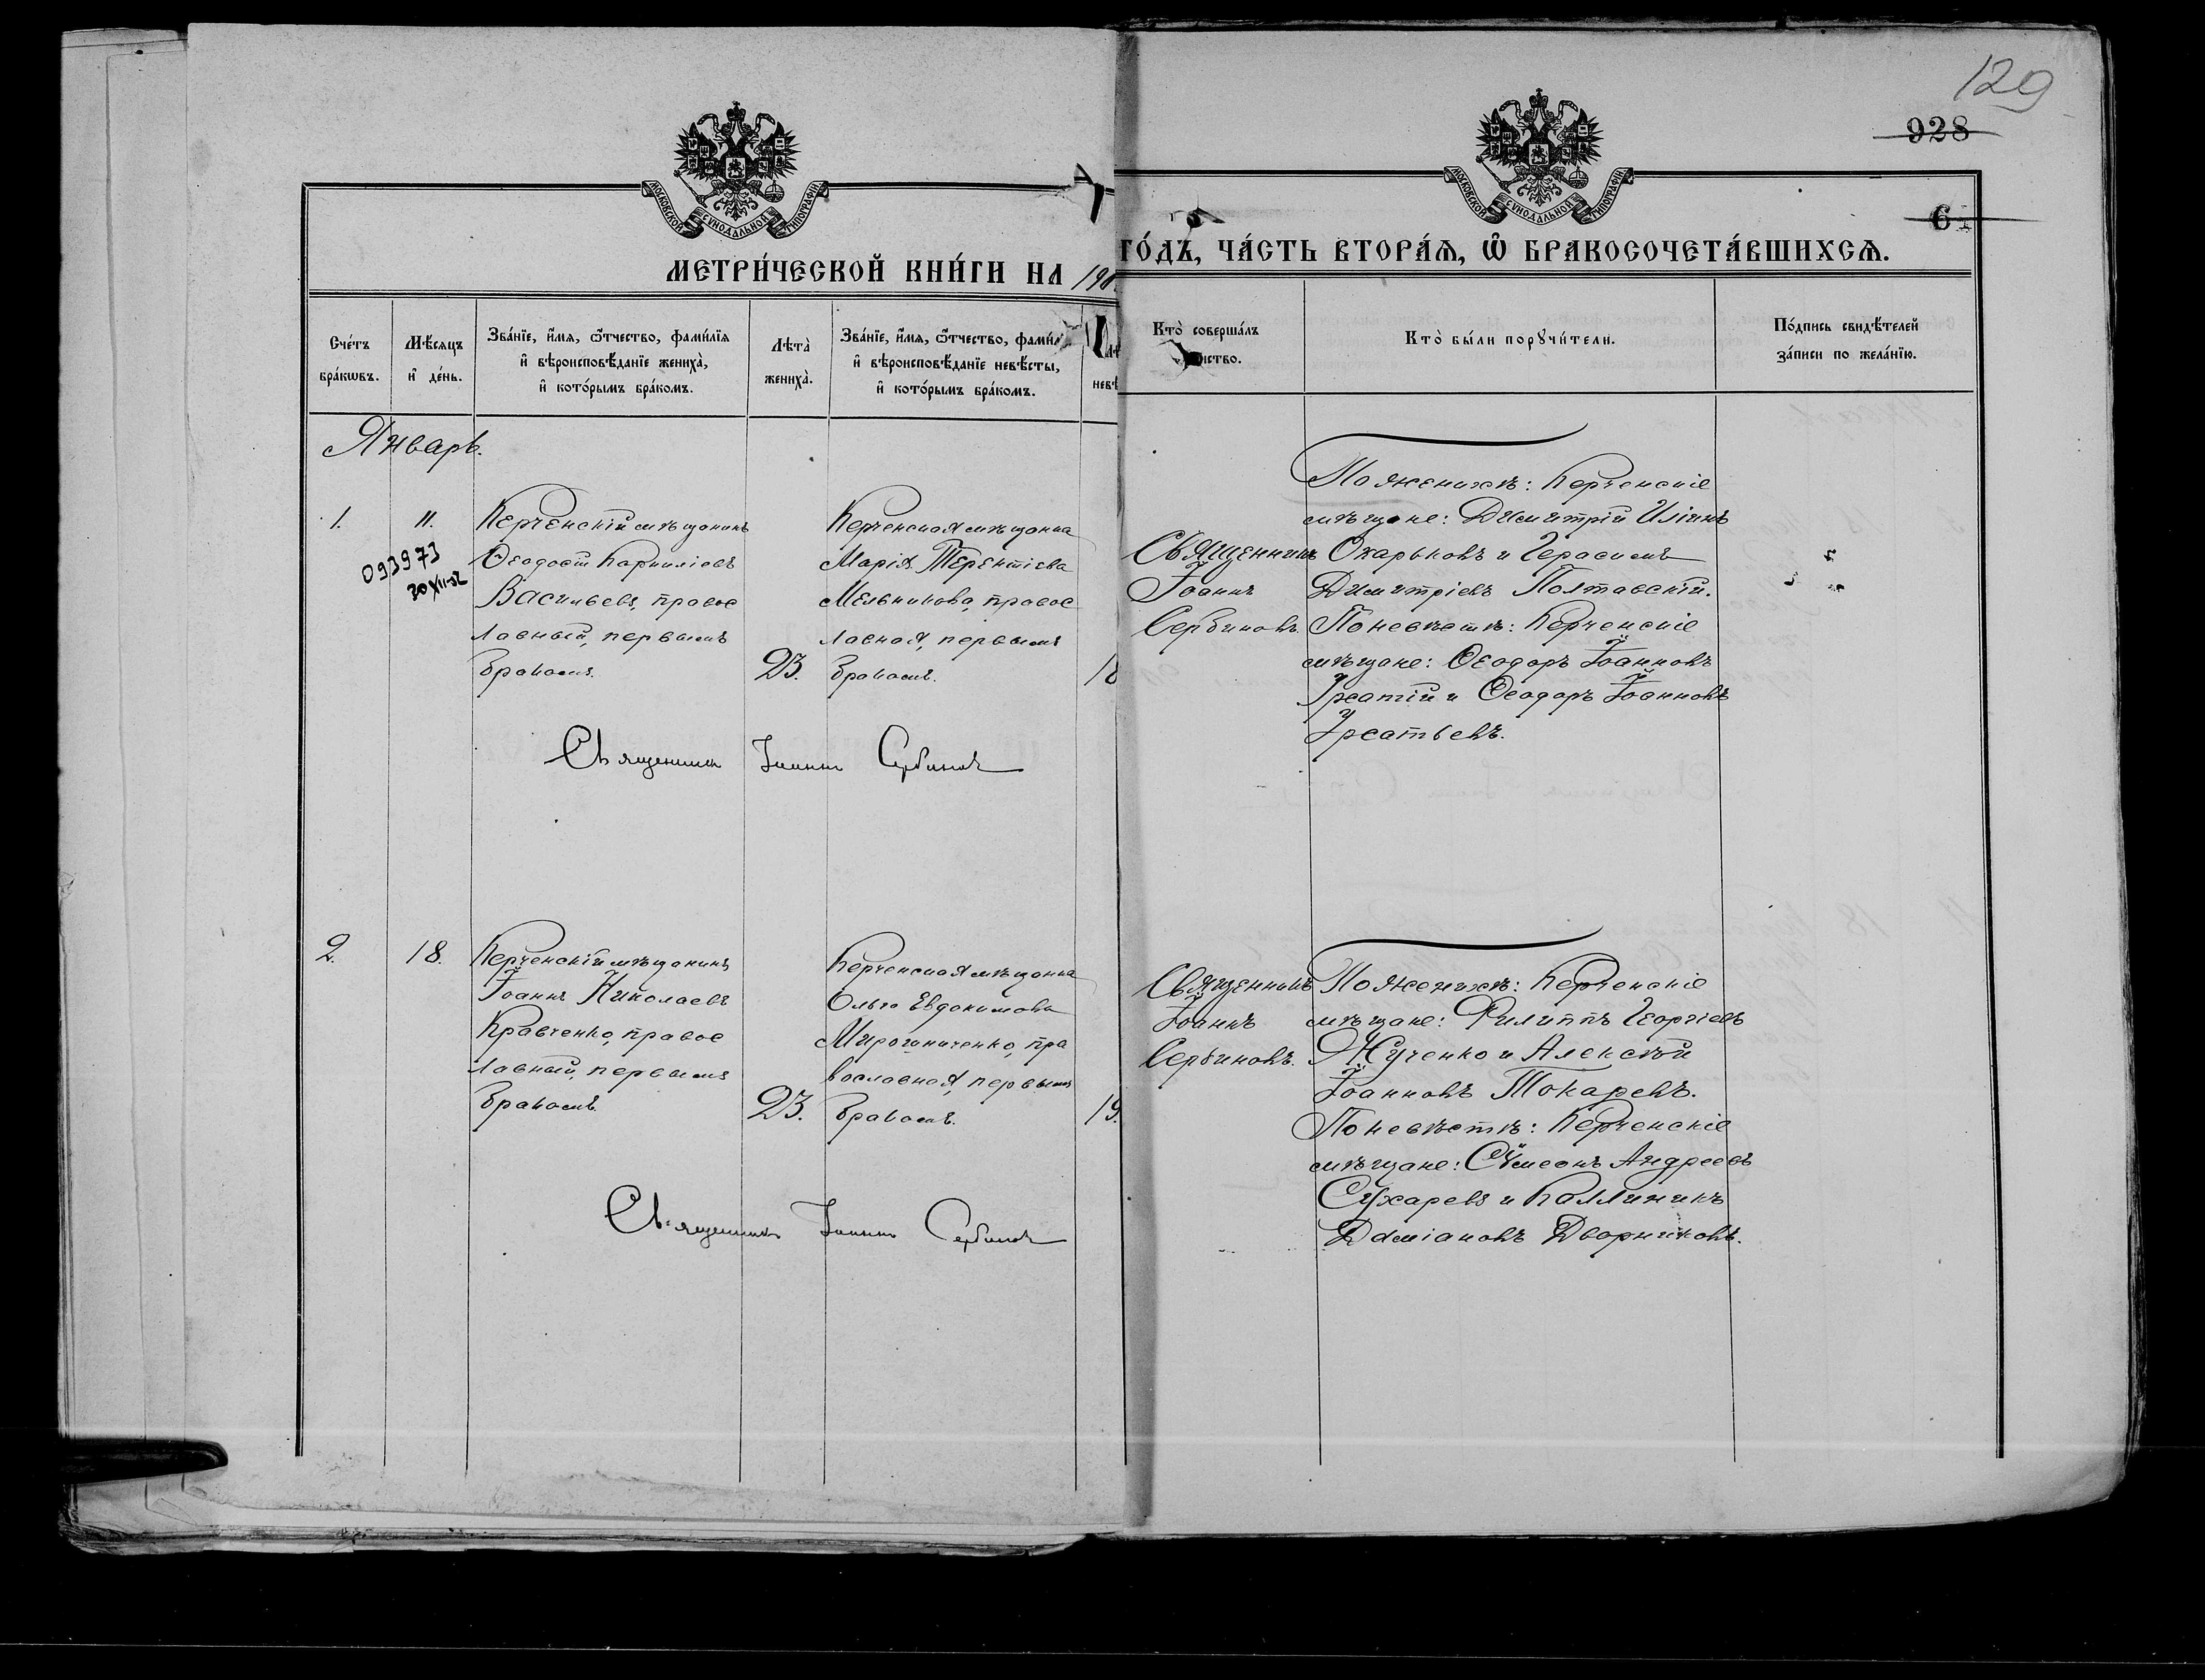 129
928
6
МОСКОВСКОЙ СѴНОДАЛЬНОЙ ТИПОГРАФІИ
МОСКОВСКОЙ СѴНОДАЛЬНОЙ ТИПОГРАФІИ
МЕТРИ́ЧЕСКОЙ КНИ́ГИ НА 190
ГО́ДЪ, ЧА́СТЬ ВТОРА́Я, Ѡ҆ БРАКОСОЧЕТА́ВШИХСЯ.
Сче́тъ бра́кѡвъ.
Мѣ́сяцъ и҆ де́нь.
Зва́нїе, и҆́мя, ѻ҆́тчество, фами́лїя
и҆ вѣроисповѣ́данїе жениха̀,
и҆ кото́рымъ бра́комъ.
Лѣта̀ жениха̀.
Зва́нїе, и҆́мя, ѻ҆́тчество, фами́лї
и҆ вѣроисповѣ́данїе невѣ́сты,
и҆ кото́рымъ бра́комъ.
невѣ
Кто̀ соверша́лъ
нство.
Кто̀ бы́ли порꙋчи́тели.
По́дпись свидѣ́телей
за́писи по жела́нїю.
Январь.
1.
11.
093973
30 XII-52
Керченскій мѣщанинъ
Ѳеодосій Карниліевъ
Васильевъ, право
лавный, первымъ
бракомъ.
23.
Керченская мѣщанка
Марія Терентіева
Мельникова, правос
лавная, первымъ
бракомъ.
18
Священникъ
Іоаннъ
Сербиновъ.
По женихѣ: Керченскіе
мѣщане: Димитрій Иліинъ
Окарьковъ и Герасимъ
Димитріевъ Полтавскій.
По невѣстѣ: Керченскіе
мѣщане: Ѳеодоръ Іоанновъ
и Ѳеодоръ Іоанновъ
Священникъ Іоаннъ Сербиновъ
2.
18.
Керченскій мѣщанинъ
Іоаннъ Николаевъ
Кравченко, правос
лавный, первымъ
бракомъ.
23.
Керченская мѣщанка
Ольга Евдокимова
Мирошниченко, пра
вославная, первымъ
бракомъ.
19.
Священникъ
Іоаннъ
Сербиновъ.
По женихѣ: Керченскіе
мѣщане: Филиппъ Георгіевъ
Жученко и Алексѣй
Іоанновъ Токаревъ.
По невѣстѣ: Керченскіе
мѣщане: Сѵмеонъ Андреевъ
Сухаревъ и Каллиникъ
Даміановъ Дворниковъ.
Священникъ Іоаннъ Сербиновъ